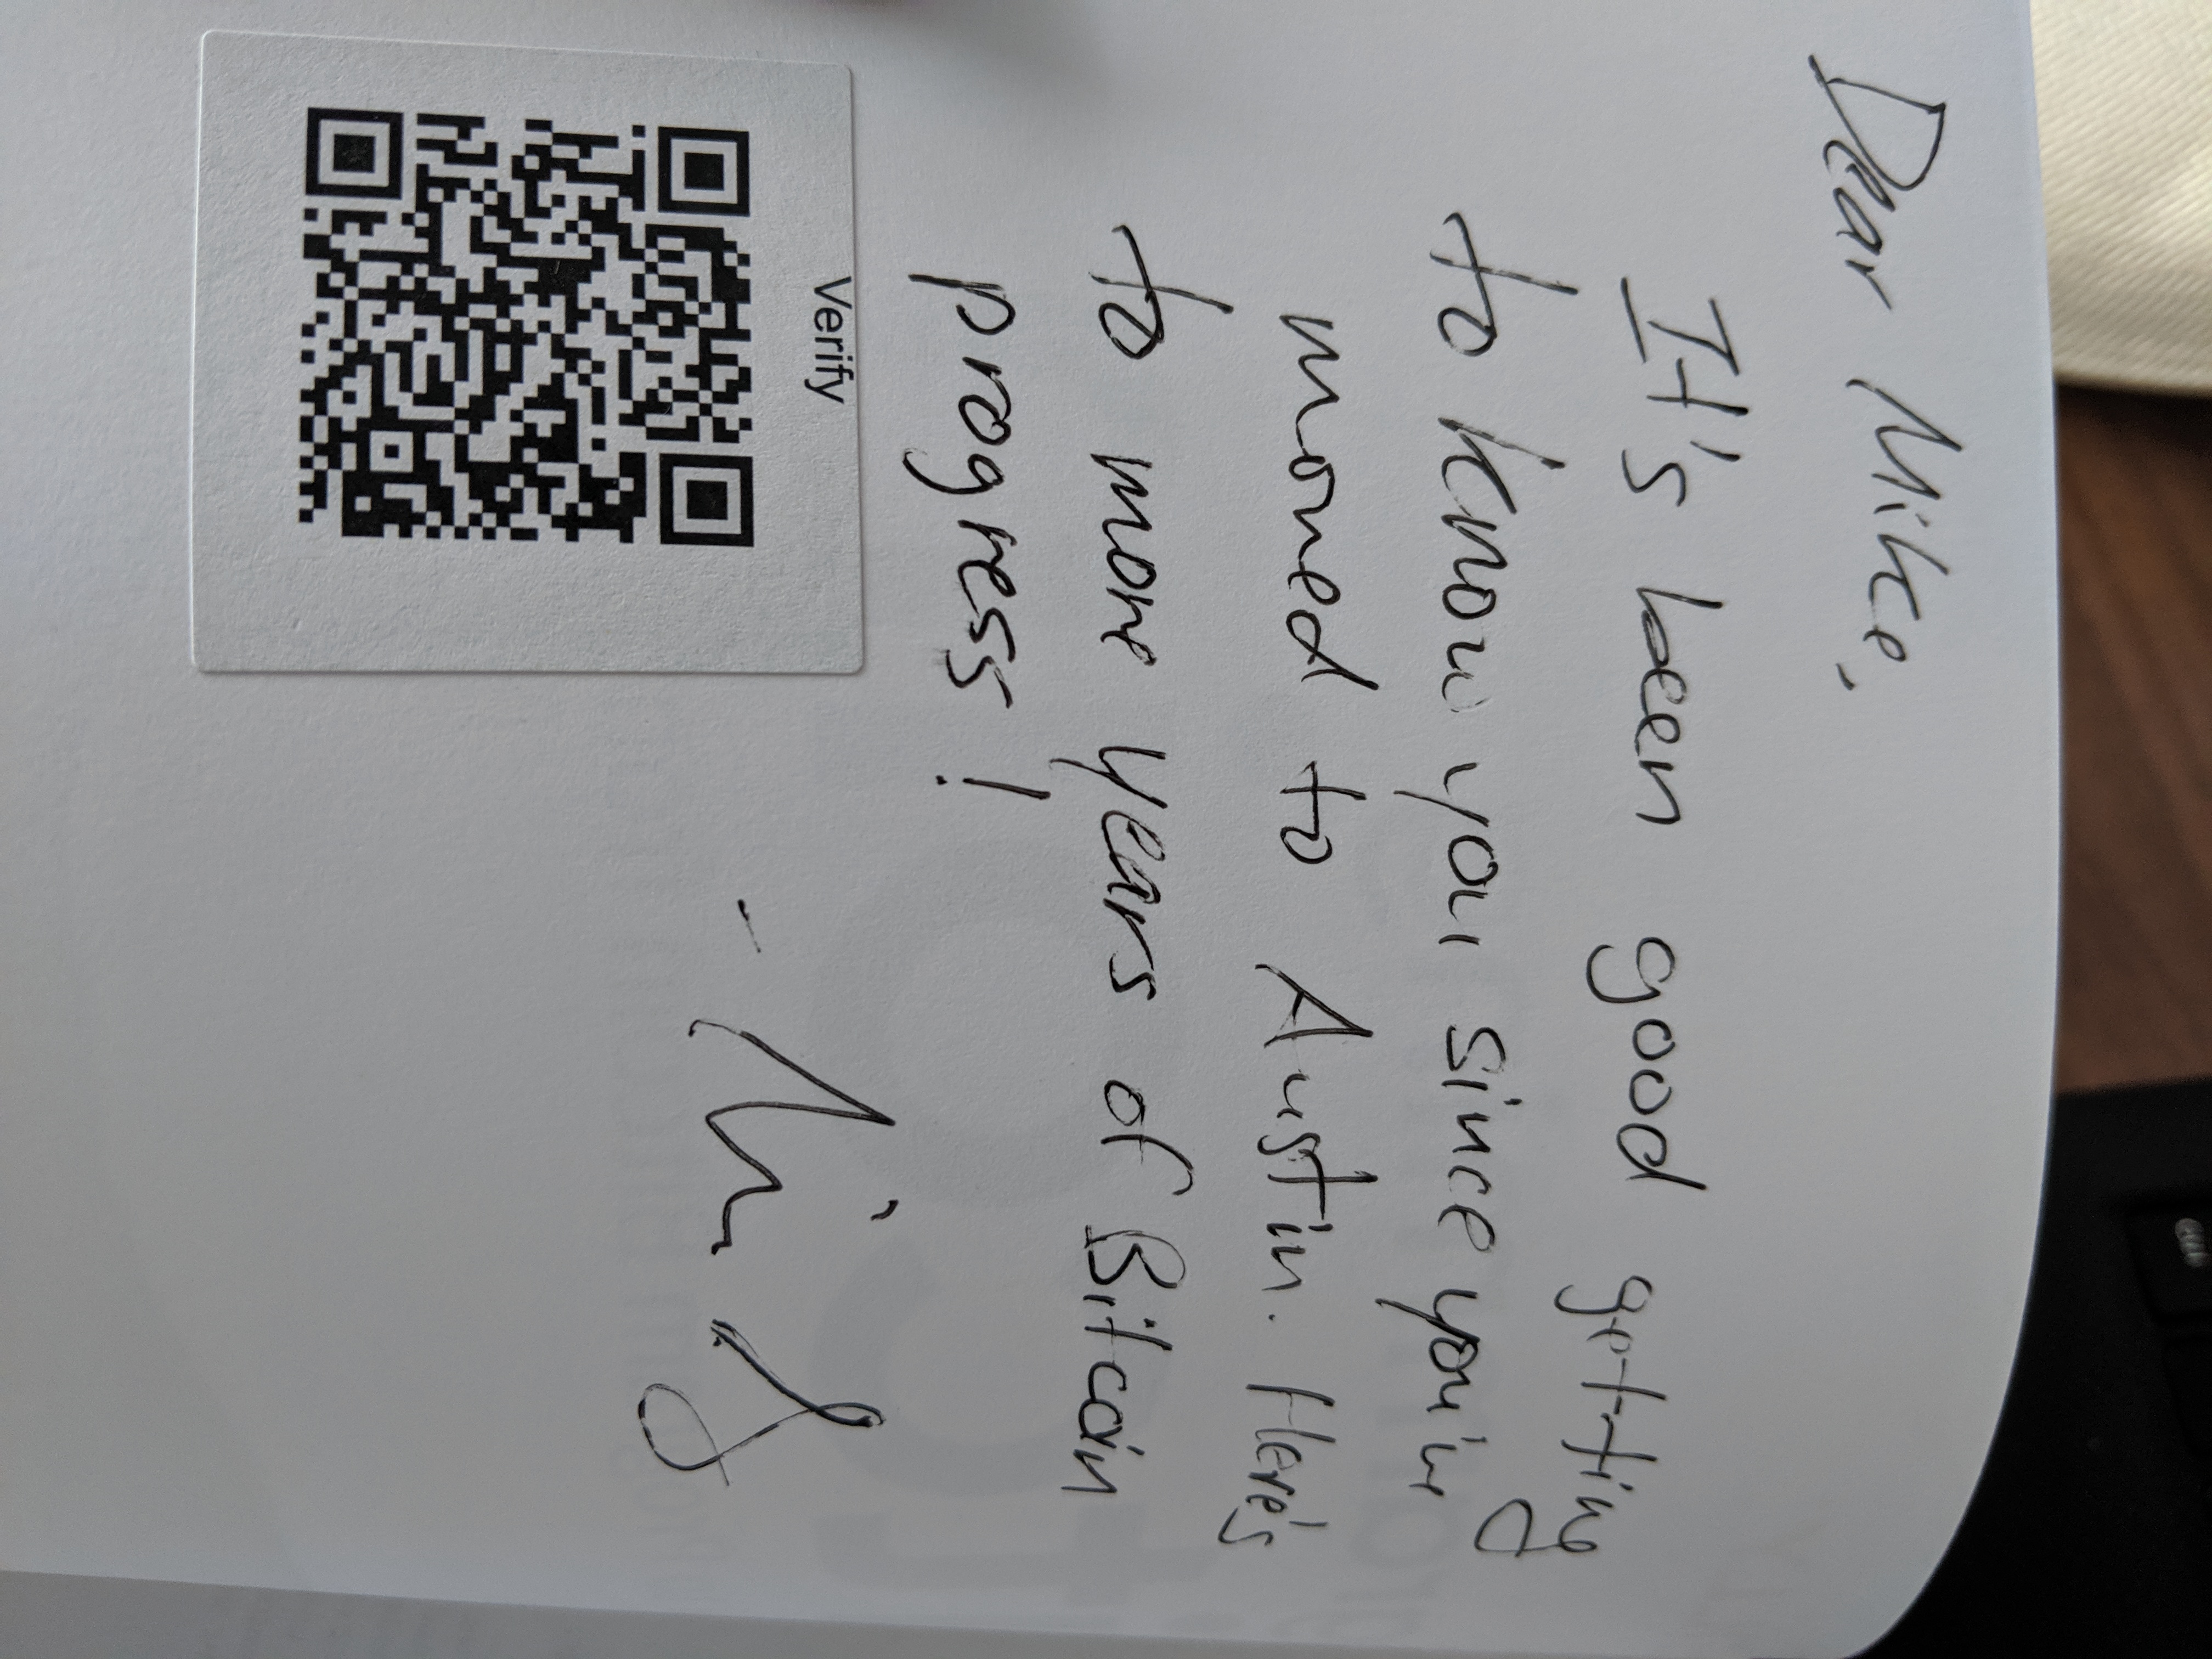 Dear Mike,
It's been good getting
to know you since you've
moved to Austin. Here's
to more years of Bitcoin
progress!
Verify